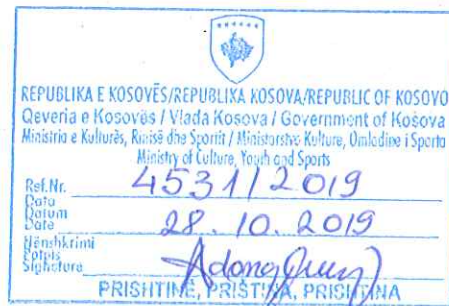 REPUBLIKA E KOSOVËS/REPUBLIKA KOSOVA/REPUBLIC OF KOSOVO
Qeveria e Kosovës / Vlada Kosova / Government of Kosova
Ministria e Kulturës, Rinisë dhe Sportit / Ministarstvo Kulture, Omladine i Sporta
Ministry of Culture, Youth and Sports
Ref.Nr. 4531/2019
Data
Datum
Date 28.10.2019
Nënshkrimi
Potpis
Signature
PRISHTINË, PRIŠTINA, PRISHTINA